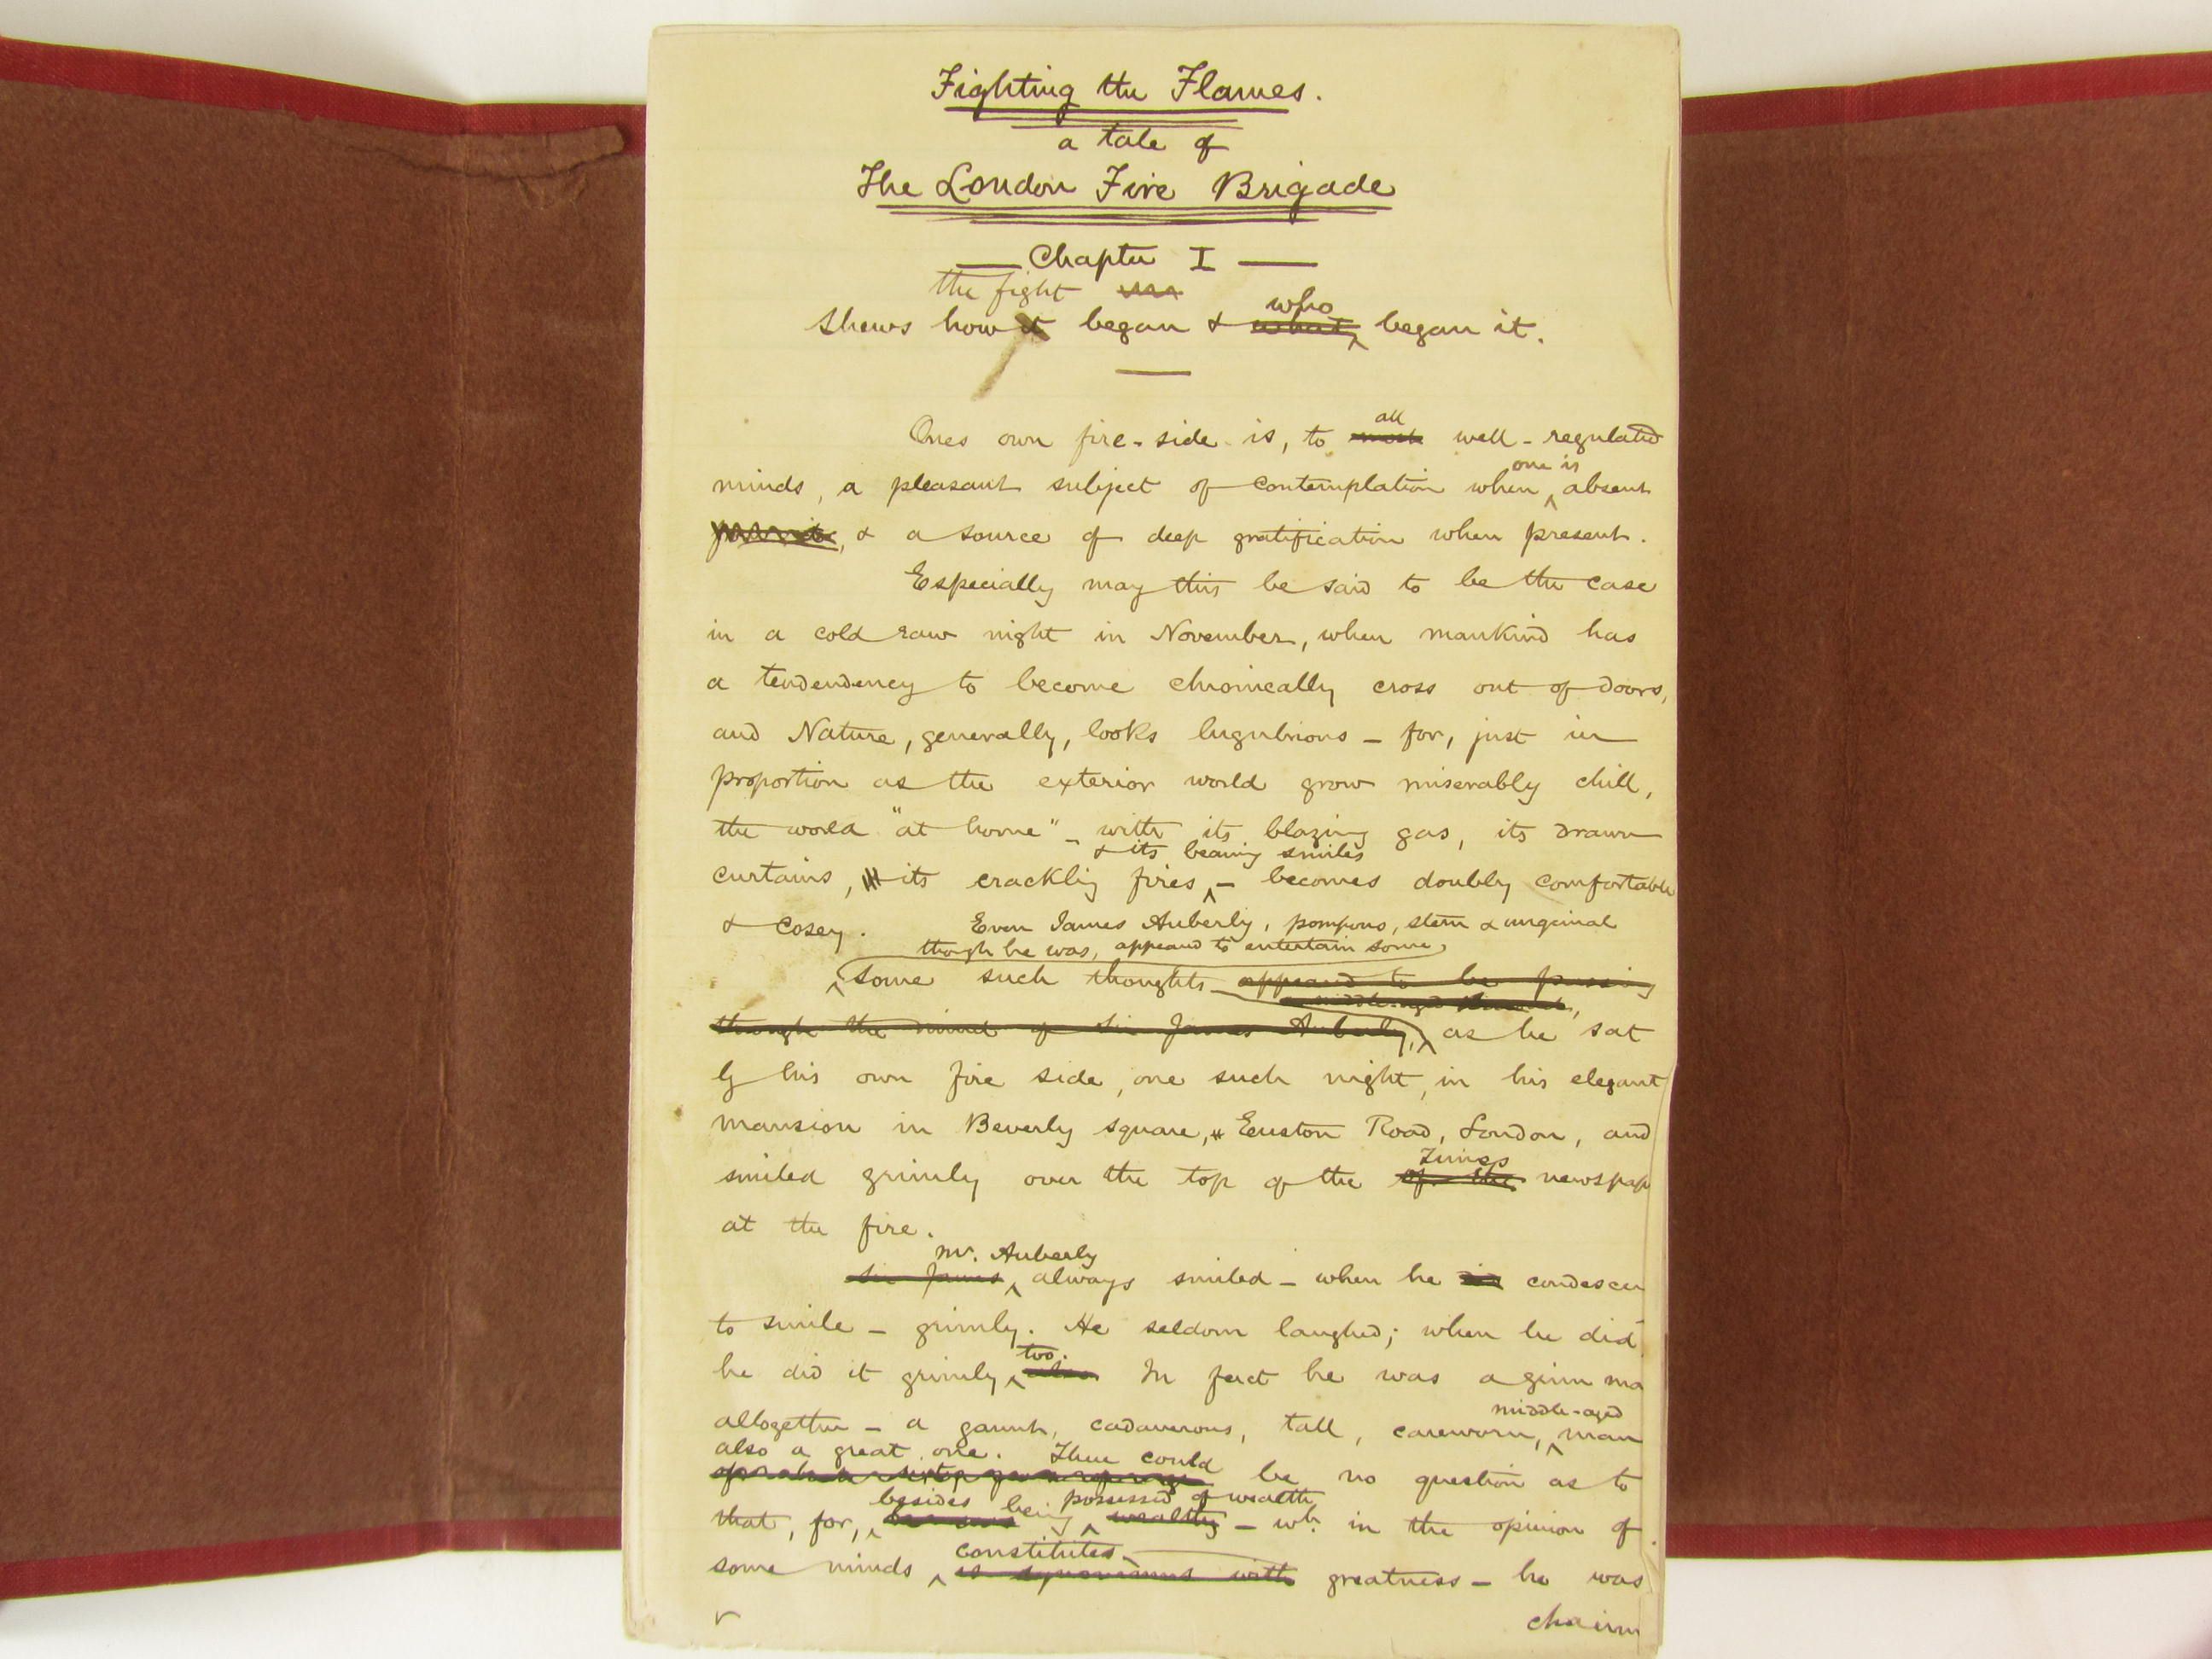 Fighting the Flames.
a tale of
The London Fire Brigade
— Chapter I —
the fight
who
Shews how it began & what began it.
all
Ones own fire-side is, to most well-regulated
one is
minds, a pleasant subject of contemplation when absent
, & a source of deep gratification when present.
Especially may this be said to be the case
in a cold raw night in November, when mankind has
a tendendency to become chronically cross out of doors,
and Nature, generally, looks lugubrious – for, just in
proportion as the exterior world grow miserably chill,
the world "at home" – with its blazing gas, its drawn
& its beaming smiles
curtains, its cracklig fires, – becomes doubly comfortable
& cosey.
Even James Auberly, pompous, stern & ungenial
though he was, appeard to entertain some
some such thoughts appeard to be passing
a middle-aged
through the mind of Sir James Auberly, as he sat
by his own fire side, one such night, in his elegant
mansion in Beverly square, Euston Road, London, and
Times
smiled grimly over the top of the of the newspap
at the fire.
Mr. Auberly
Sir James always smiled – when he condescen
to smile – grimly. He seldom laughed; when he did
too.
he did it grimly also In fact he was a grim ma
middle-aged
altogether – a gaunt, cadaverous, tall, careworn, man
also a great one. There could
be no question as to
besides being possessed of wealth
that, for, wealthy – wh. in the opinion of
constitutes
some minds is synonimous with greatness – he was
chairm